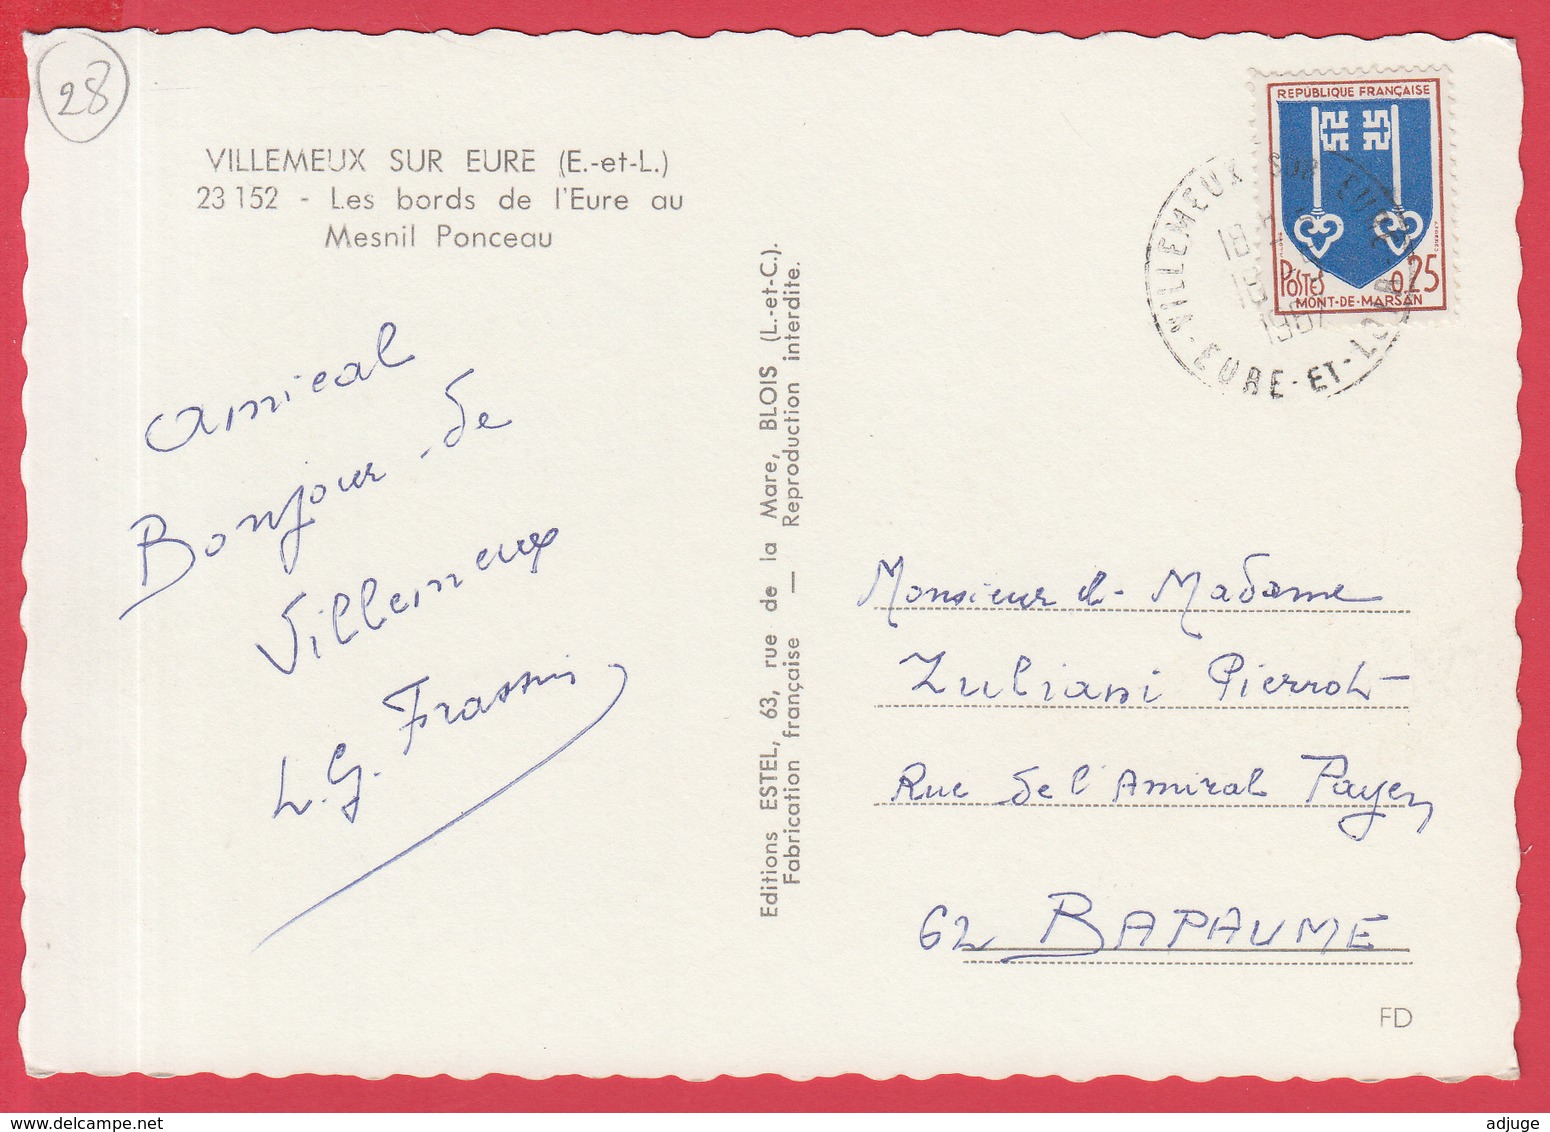 28
VILLEMEUX SUR EURE (E.-et-L.)
23 152 - Les bords de l'Eure au
Mesnil Ponceau
amical
Bonjour de
Villemeux
L.G. Frassin
Editions ESTEL, 63, rue de la Mare, BLOIS (L.-et-C.).
Fabrication française — Reproduction interdite.
REPUBLIQUE FRANÇAISE
POSTES 0,25
MONT-DE-MARSAN
VILLEMEUX SUR EURE
18 H
18
1967
EURE-ET-LOIR
Monsieur et Madame
Zuliani Pierrot
Rue de l'Amiral Payen
62 BAPAUME
FD
adjuge
www.delcampe.net